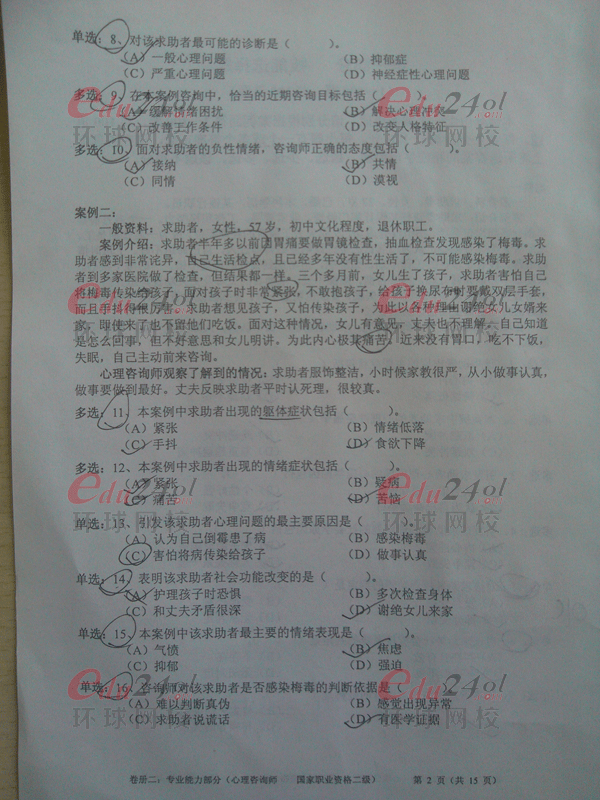 单选：8、对该求助者最可能的诊断是（　　）。
（A）一般心理问题　　（B）抑郁症
（C）严重心理问题　　（D）神经症性心理问题
多选：9、在本案例咨询中，恰当的近期咨询目标包括（　　）。
（A）缓解情绪困扰　　（B）解决心理冲突
（C）改善工作条件　　（D）改变人格特征
多选：10、面对求助者的负性情绪，咨询师正确的态度包括（　　）。
（A）接纳　　（B）共情
（C）同情　　（D）漠视
案例二：
一般资料：求助者，女性，57岁，初中文化程度，退休职工。
案例介绍：求助者半年多以前因胃痛要做胃镜检查，抽血检查发现感染了梅毒。求
助者感到非常诧异，自己生活检点，且已经多年没有性生活了，不可能感染梅毒。求助
者到多家医院做了检查，但结果都一样。三个多月前，女儿生了孩子，求助者害怕自己
将梅毒传染给孩子，面对孩子时非常紧张，不敢抱孩子，给孩子换尿布时要戴双层手套，
而且手抖得很厉害。求助者想见孩子，又怕传染孩子，为此以各种理由谢绝女儿女婿来
家，即使来了也不留他们吃饭。面对这种情况，女儿有意见，丈夫也不理解。自己知道
是怎么回事，但不好意思和女儿明讲。为此内心极其痛苦，近来没有胃口，吃不下饭，
失眠，自己主动前来咨询。
心理咨询师观察了解到的情况：求助者服饰整洁，小时候家教很严，从小做事认真，
做事要做到最好。丈夫反映求助者平时认死理，很较真。
多选：11、本案例中求助者出现的躯体症状包括（　　）。
（A）紧张　　（B）情绪低落
（C）手抖　　（D）食欲下降
多选：12、本案例中求助者出现的情绪症状包括（　　）。
（A）紧张　　（B）疑病
（C）痛苦　　（D）苦恼
单选：13、引发该求助者心理问题的最主要原因是（　　）。
（A）认为自己倒霉患了病　　（B）感染梅毒
（C）害怕将病传染给孩子　　（D）做事认真
单选：14、表明该求助者社会功能改变的是（　　）。
（A）护理孩子时恐惧　　（B）多次检查身体
（C）和丈夫矛盾很深　　（D）谢绝女儿来家
单选：15、本案例中该求助者最主要的情绪表现是（　　）。
（A）气愤　　（B）焦虑
（C）抑郁　　（D）强迫
单选：16、咨询师对该求助者是否感染梅毒的判断依据是（　　）
（A）难以判断真伪　　（B）感觉出现异常
（C）求助者说谎话　　（D）有医学证据
卷册二：专业能力部分（心理咨询师　　国家职业资格二级）　　第 2 页（共 15 页）
edu24ol
环球网校
edu24ol
环球网校
edu24ol
环球网校
edu24ol
环球网校
edu24ol
环球网校
edu24ol
环球网校
edu24ol
环球网校
edu24ol
环球网校